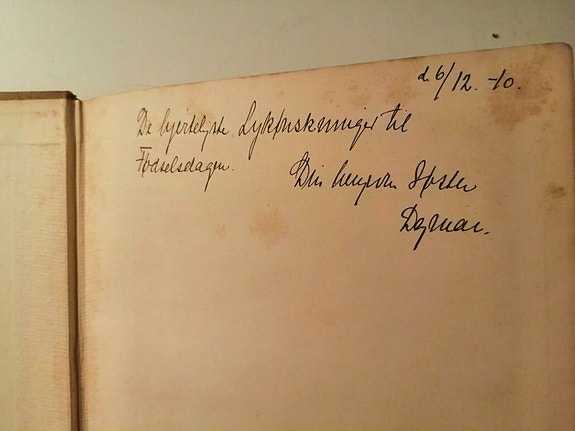 d. 6/12. -10.
De hjerteligste Lykønskninger til
Fødselsdagen.
Din Søster
Dagmar.